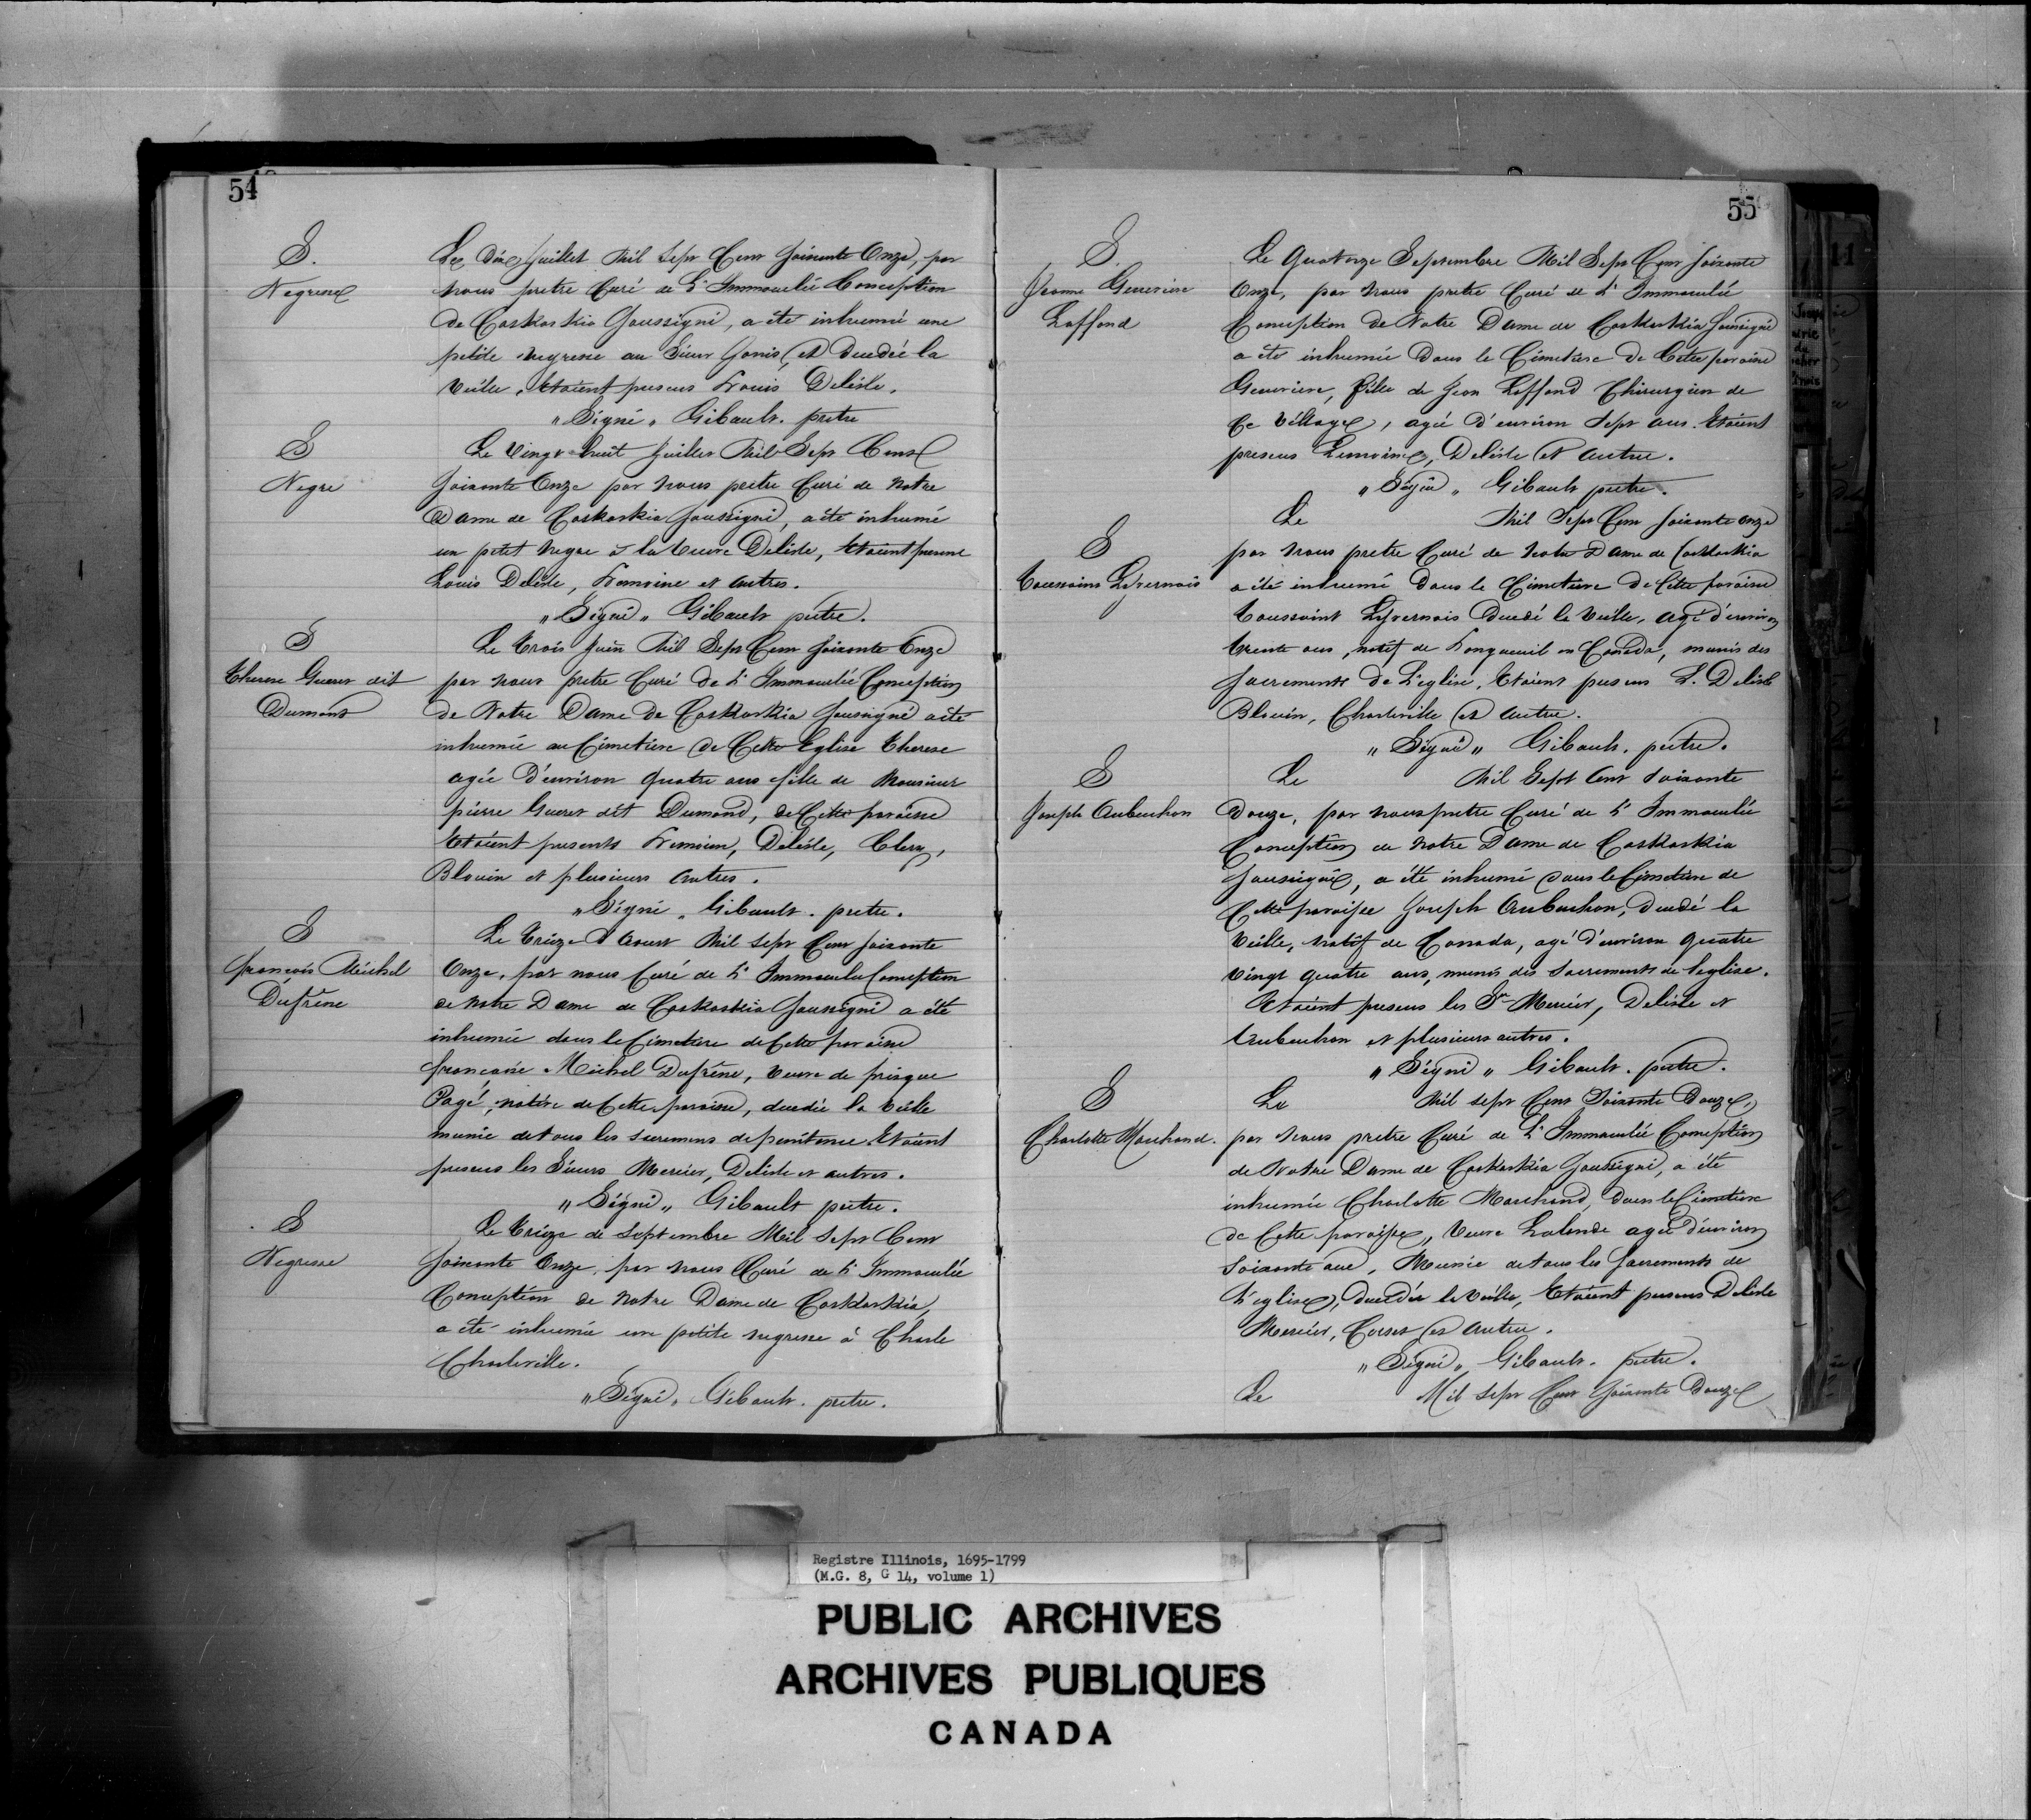 54
S.
Negresse
Le dix Juillet Mil Sept Cent soixante Onze, par
nous pretre Curé de L'Immaculée Conception
de Caskaskia Soussigné, a été inhumée une
petite negresse au Sieur Janis, et decedée la
veille. Etoient presens Louis Delisle.
"Signé" Gibault. pretre
S
Negre
Le Vingt huit Juillet Mil Sept Cent
soixante Onze par nous pretre Curé de Notre
Dame de Caskaskia soussigné, a été inhumé
un petit negre à la veuve Delisle, Etoient presens
Louis Delisle, Lemoine et autres.
"Signé" Gibault pretre.
S
Therese Gueret dit
Dumont
Le Trois Juin Mil Sept Cent soixante Onze
par nous pretre Curé de L'Immaculée Conception
de Notre Dame de Caskaskia soussigné a été
inhumée au Cimetiere de Cette Eglise Therese
agée d'environ quatre ans fille de Monsieur
pierre Gueret dit Dumond, de Cette paroisse
Etoient presents Lemoine, Delisle, Clery,
Blouin et plusieurs autres.
"Signé" Gibault. pretre.
S
francois Michel
Dufrêne
Le Treize d'Aoust Mil sept Cent soixante
Onze, par nous Curé de L'Immaculée Conception
de Notre Dame de Caskaskia Soussigné a été
inhumée dans le Cimetiere de Cette paroisse
francoise Michel Dufrêne, veuve de prisque
Pagé, native de Cette paroisse, decedée la veille
munie de tous les sacremens de penitence Etoient
presens les Sieurs Mercier, Delisle et autres.
"Signé" Gibault pretre.
S
Negresse
Le Treize de Septembre Mil Sept Cent
soixante Onze, par nous Curé de L'Immaculée
Conception de Notre Dame de Caskaskia,
a été inhumée une petite negresse à Charle
Charleville.
"Signé" Gibault. pretre.
55
S.
Jeanne Genevieve
Laffond
Le Quatorze Septembre Mil Sept Cent soixante
Onze, par nous pretre Curé de L'Immaculée
Conception de Notre Dame de Caskaskia soussigné
a été inhumée Dans le Cimetiere de Cette paroisse
Genevieve, fille de Jean Laffond Chirurgien de
Ce village, agée d'environ sept ans. Etoient
presens Lemoine, Delisle et autres.
"Signé" Gibault pretre.
S
Toussaint Livernois
Le Mil Sept Cent soixante onze
par nous pretre Curé de Notre Dame de Caskaskia
a été inhumé Dans le Cimetiere de Cette paroisse
Toussaint Livernois decedé la veille, agé d'environ
trente ans, natif de Longueuil en Canada, munis des
sacrements de L'eglise, Etoient presens L. Delisle
Blouin, Charleville et autres.
"Signé" Gibault. pretre.
S
Joseph Aubuchon
Le Mil Sept Cent soixante
Douze, par nous pretre Curé de L'Immaculée
Conception de Notre Dame de Caskaskia
soussigné, a été inhumé dans le Cimetiere de
Cette paroisse Joseph Aubuchon, decedé la
veille, natif de Canada, agé d'environ quatre
vingt quatre ans, munis des sacrements de l'eglise.
Etoient presens les Sr Mercier, Delisle et
Aubuchon et plusieurs autres.
"Signé" Gibault. pretre.
S
Charlotte Marchand.
Le Mil sept Cent Soixante Douze,
par nous pretre Curé de L'Immaculée Conception
de Notre Dame de Caskaskia Soussigné, a été
inhumée Charlotte Marchand, dans le Cimetiere
de Cette paroisse, veuve Lalande agée d'environ
soixante ans, Munie de tous les sacrements de
L'eglise, decedée la veille, Etoient presens Delisle
Mercier, et autres.
"Signé" Gibault. pretre.
Le Mil sept Cent Soixante Douze
Registre Illinois, 1695-1799
(M.G. 8, G 14, volume 1)
PUBLIC ARCHIVES
ARCHIVES PUBLIQUES
CANADA